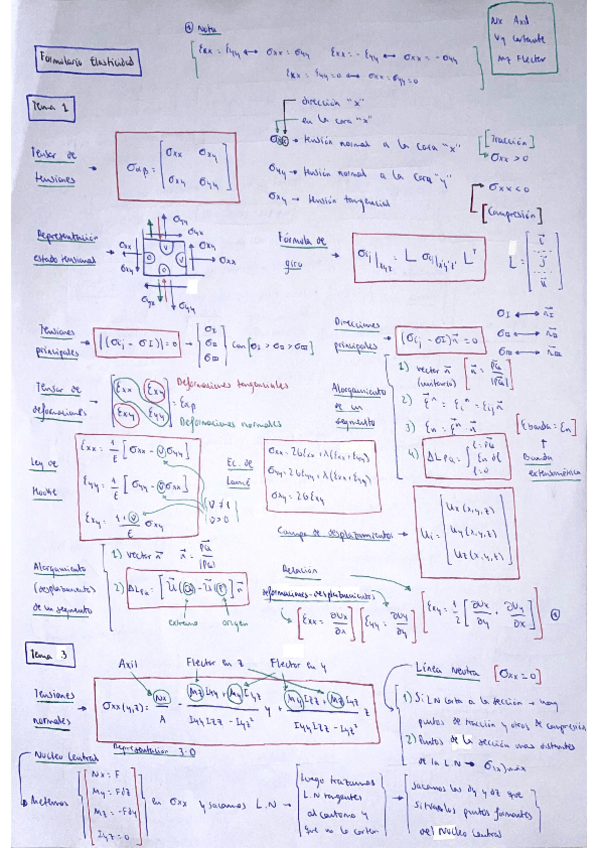 Formulario Elasticidad
* Nota
εxx = εyy ↔ σxx = σyy εxx = -εyy ↔ σxx = -σyy
εxx = εyy = 0 ↔ σxx = σyy = 0
Nx Axil
Vy Cortante
Mz Flector
Tema 1
Tensor de tensiones → σαβ = [σxx σxy
σxy σyy]
dirección "x"
en la cara "x"
σxx → tensión normal a la cara "x"
σyy → tensión normal a la cara "y"
σxy → tensión tangencial
[Tracción]
σxx > 0
σxx < 0
[Compresión]
Representación estado tensional →
σyy
σxy
σxx
σxy
σxx
σxy
σyx
σyy
Fórmula de giro → σij|xyz = L σij|x'y'z' L^T
L = [i
j
k]
Tensiones principales → |(σij - σI)| = 0 → [σI
σII
σIII] con [σI > σII > σIII]
Direcciones principales → (σij - σI)n = 0
σI ↔ nI
σII ↔ nII
σIII ↔ nIII
Tensor de deformaciones → [εxx εxy
εxy εyy] = εαβ
Deformaciones tangenciales
Deformaciones normales
Alargamiento de un segmento
1) vector n (unitario) [n = PQ / |PQ|]
2) ε^n = εi^n = εij n
3) εn = ε^n n
4) ΔLPQ = ∫ εn dl
[εbanda = εn]
Banda extensométrica
Ley de Hooke
εxx = 1/E [σxx - νσyy]
εyy = 1/E [σyy - νσxx]
εxy = (1+ν)/E σxy
ν > 0
Ec. de Lamé
σxx = 2Gεxx + λ(εxx + εyy)
σyy = 2Gεyy + λ(εxx + εyy)
σxy = 2Gεxy
Campo de desplazamientos → Ui = [Ux (x,y,z)
Uy (x,y,z)
Uz (x,y,z)]
Alargamiento (desplazamiento) de un segmento
1) vector n n = PQ / |PQ|
2) ΔLPQ = [U(Q) - U(P)] n
extremo origen
Relación deformaciones-desplazamientos
[εxx = ∂Ux/∂x] [εyy = ∂Uy/∂y] [εxy = 1/2 [∂Ux/∂y + ∂Uy/∂x]] *
Tema 3
Axil Flector en z Flector en y
Tensiones normales → σxx(y,z) = Nx/A - (Mz Iyy + My Iyz)/(Iyy Izz - Iyz²) y + (My Izz + Mz Iyz)/(Iyy Izz - Iyz²) z
Representación 3-D
Línea Neutra [σxx = 0]
1) Si LN corta a la sección → hay puntos de tracción y otros de compresión
2) Puntos de la sección más distantes de la LN → σxx)máx
Núcleo Central
Metemos [Nx = F
My = Fdz
Mz = -Fdy
Iyz = 0] en σxx y sacamos L.N →
Luego trazamos
L.N tangentes
al contorno y
que no lo corten
sacamos los dy y dz que
sitúan los puntos formantes
del Núcleo Central